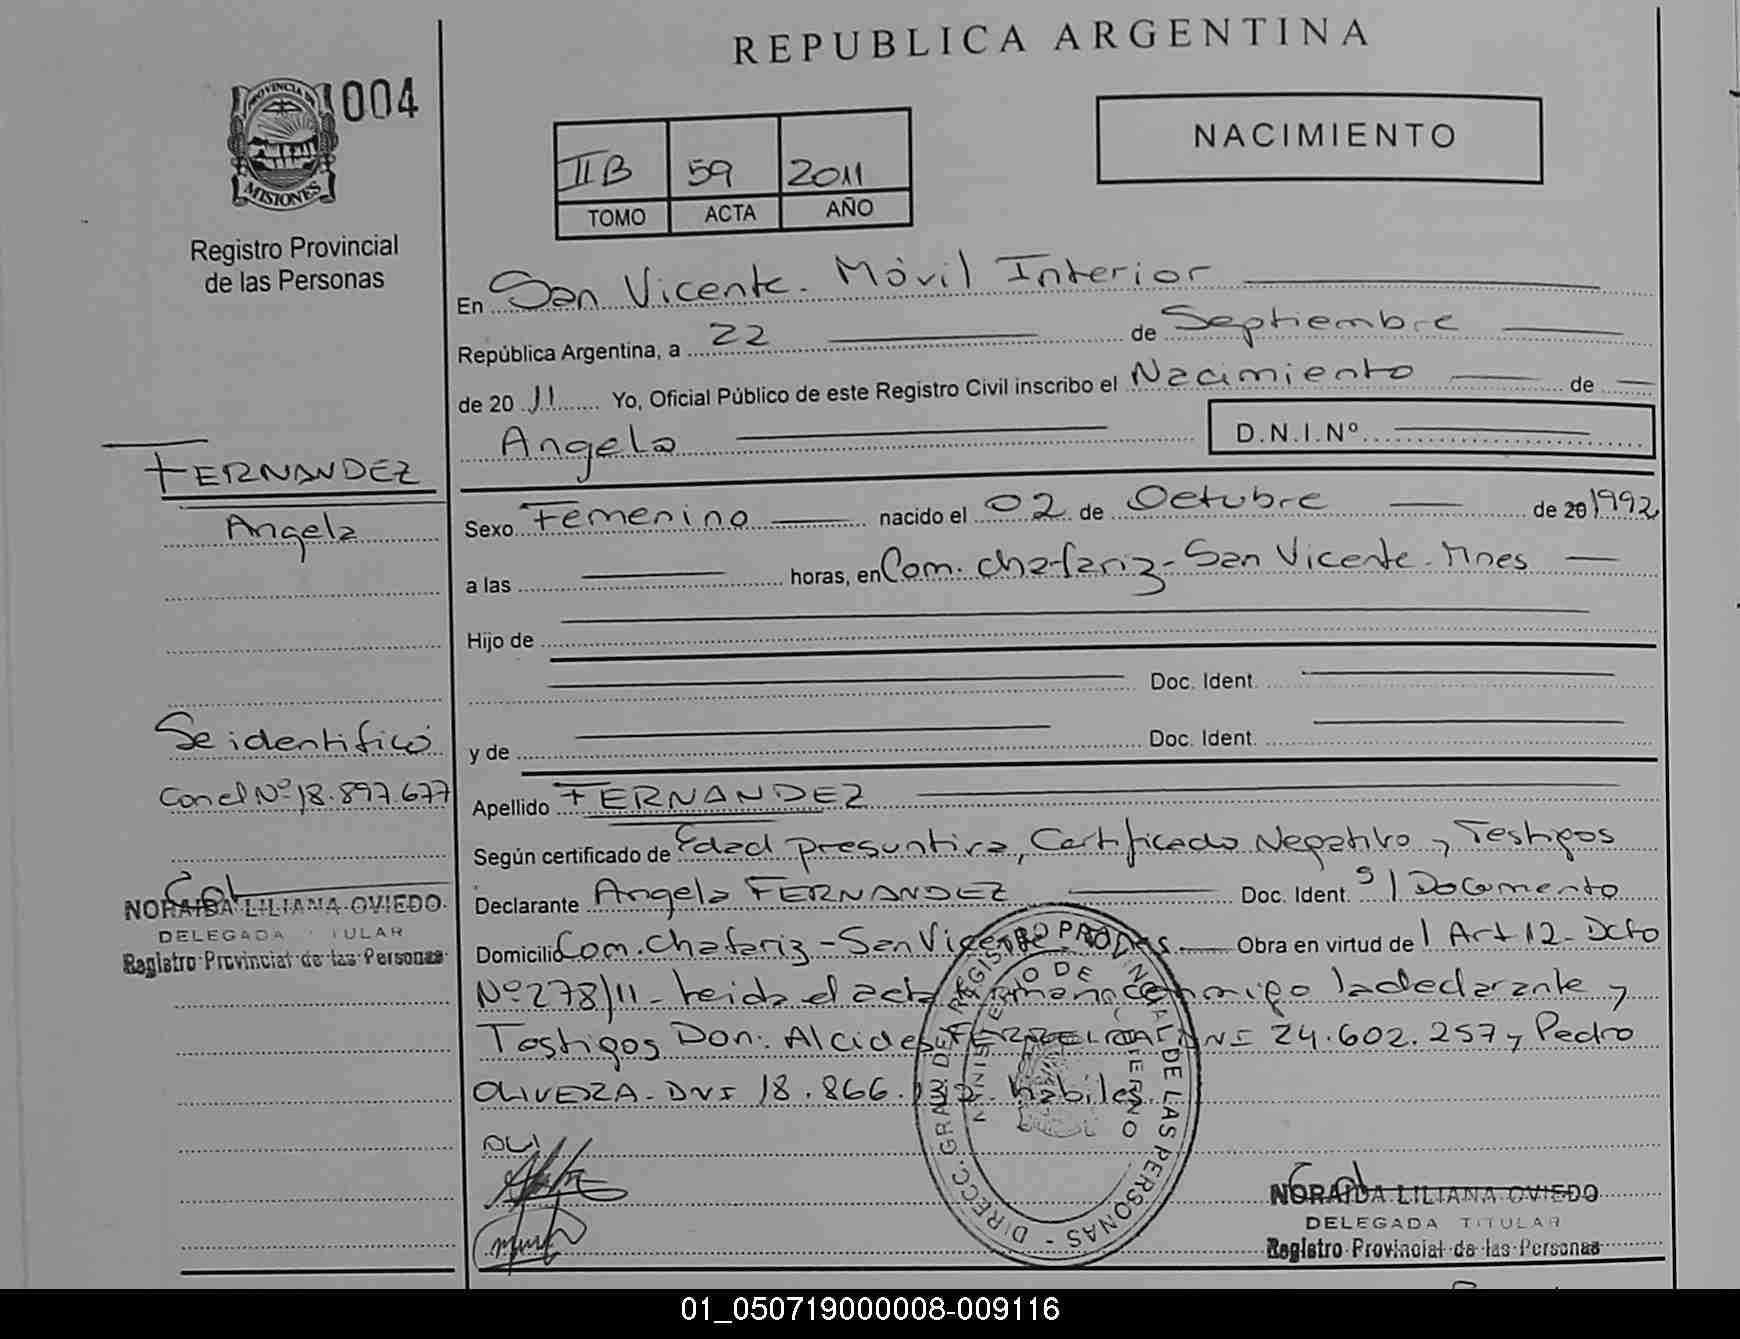 REPUBLICA ARGENTINA
004
PROVINCIA DE
MISIONES
Registro Provincial
de las Personas
IIB 59 2011
TOMO ACTA AÑO
NACIMIENTO
En San Vicente. Móvil Interior
República Argentina, a 22 de Septiembre
de 20 11 Yo, Oficial Público de este Registro Civil inscribo el Nacimiento de
Angela D.N.I.Nº
FERNANDEZ
Angela
Sexo Femenino nacido el 02 de Octubre de 20 1992
a las horas, en Com. chafariz - San Vicente. Mnes
Hijo de
Doc. Ident.
y de Doc. Ident.
Se identificó
con el Nº 18.897.677
Apellido FERNANDEZ
Según certificado de Edad presuntiva, Certificado Negativo y Testigos
Declarante Angela FERNANDEZ Doc. Ident. S/Documento
Domicilio Com. Chafariz - San Vicente Obra en virtud de l Art 12 - Dcto
Nº 278/11 - leida el acta conmigo la declarante y
Testigos Don: Alcides DNI 24.602.257 y Pedro
OLIVERA - DNI 18.866. habiles
NORAIDA LILIANA OVIEDO
DELEGADA TITULAR
Registro Provincial de las Personas
DIRECC. GRAL. DEL REGISTRO PROVINCIAL DE LAS PERSONAS
MINISTERIO DE GOBIERNO
NORAIDA LILIANA OVIEDO
DELEGADA TITULAR
Registro Provincial de las Personas
01_050719000008-009116